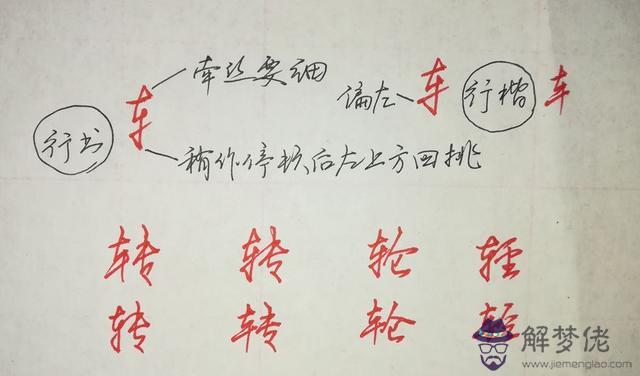 牵丝要细
行书 车 偏左 车 行楷 车
稍作停顿后左上方回挑
转 转 轮 轻
转 转 轮 轻
解梦佬
www.jiemenglao.com